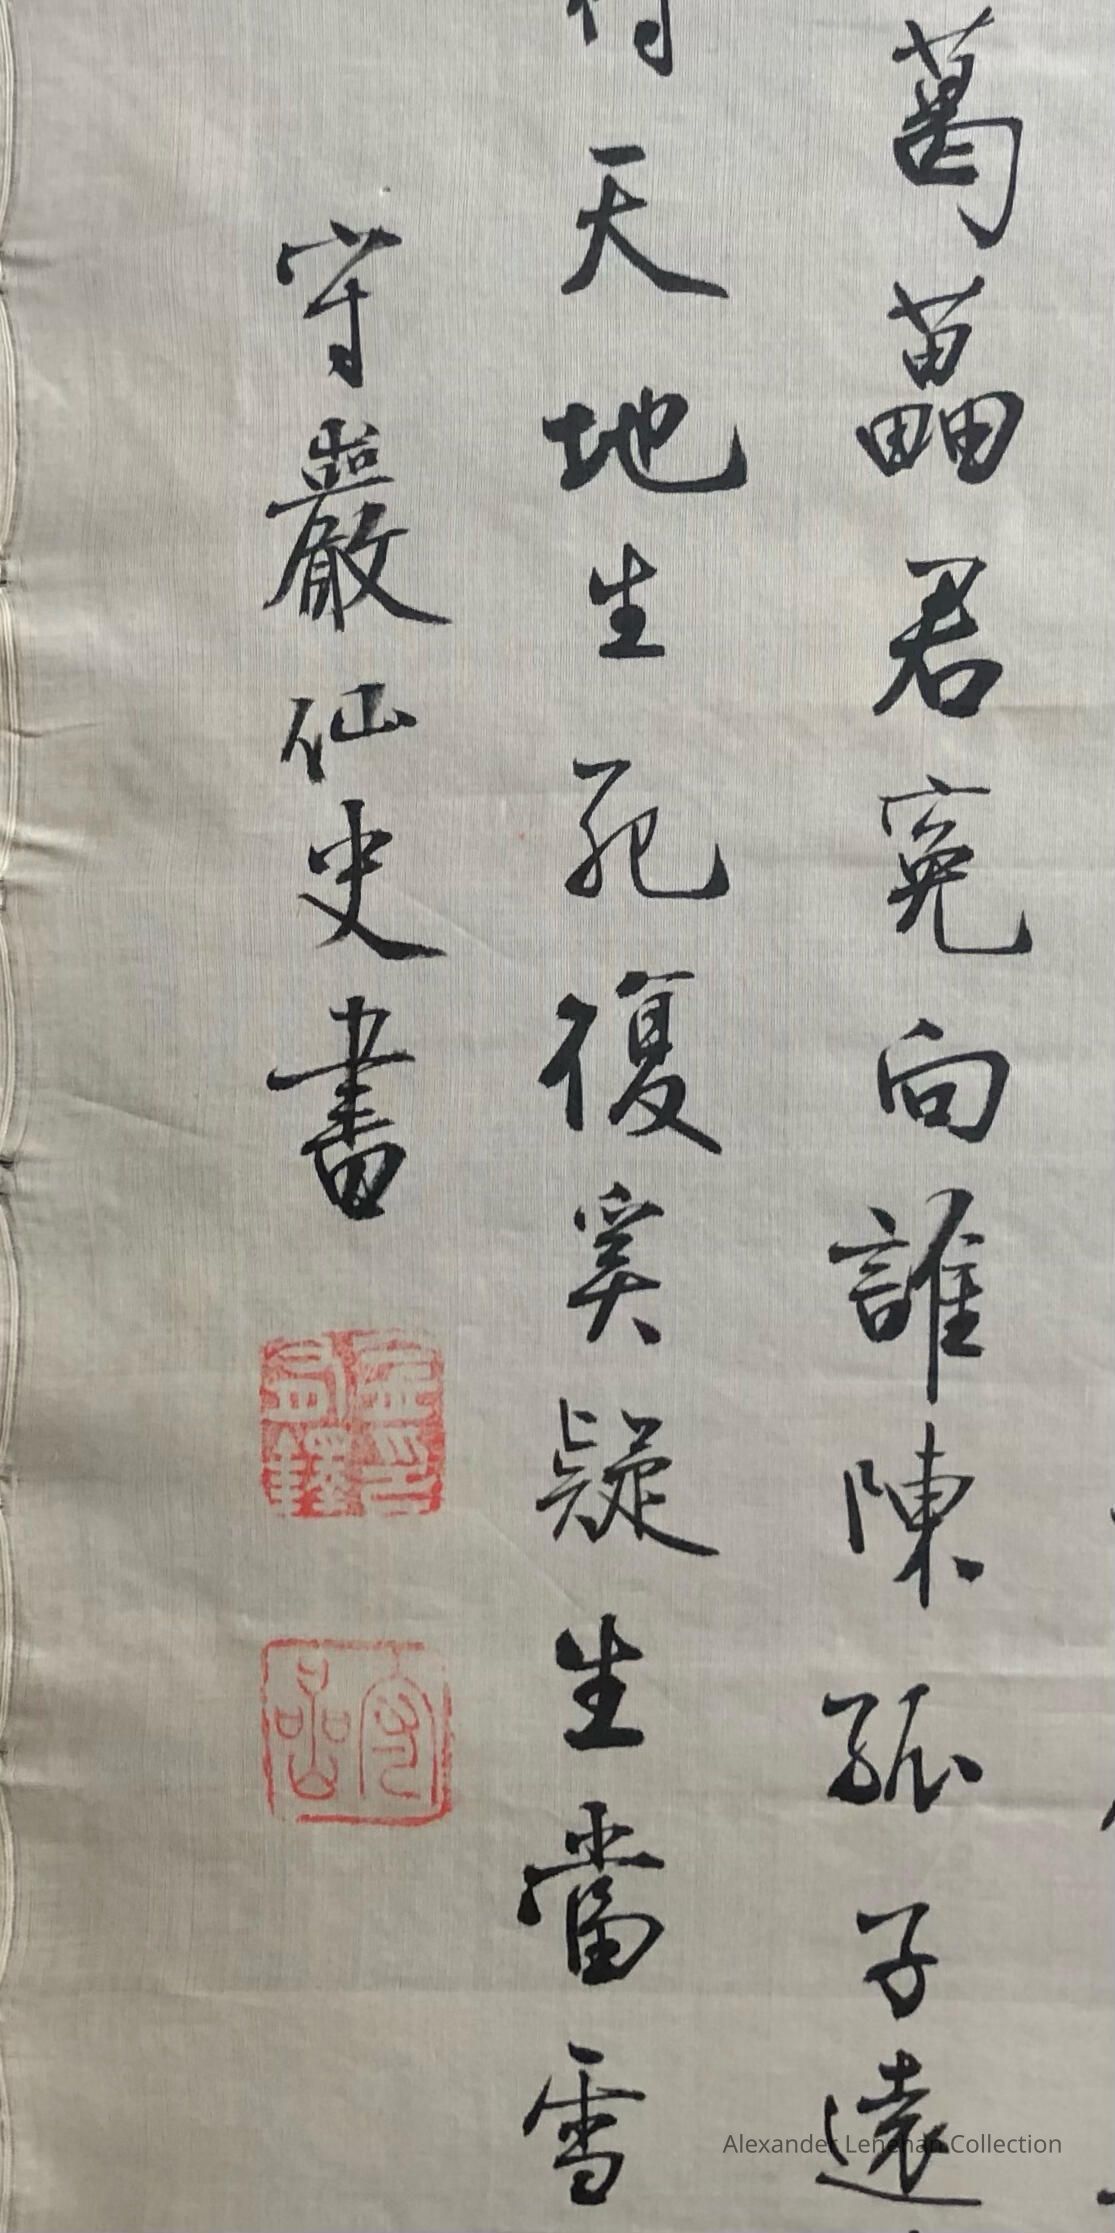 葛藟君寃向誰陳孤子遠
天地生死復奚疑生當雪
守巖仙史書
守巖
Alexander Lenehan Collection